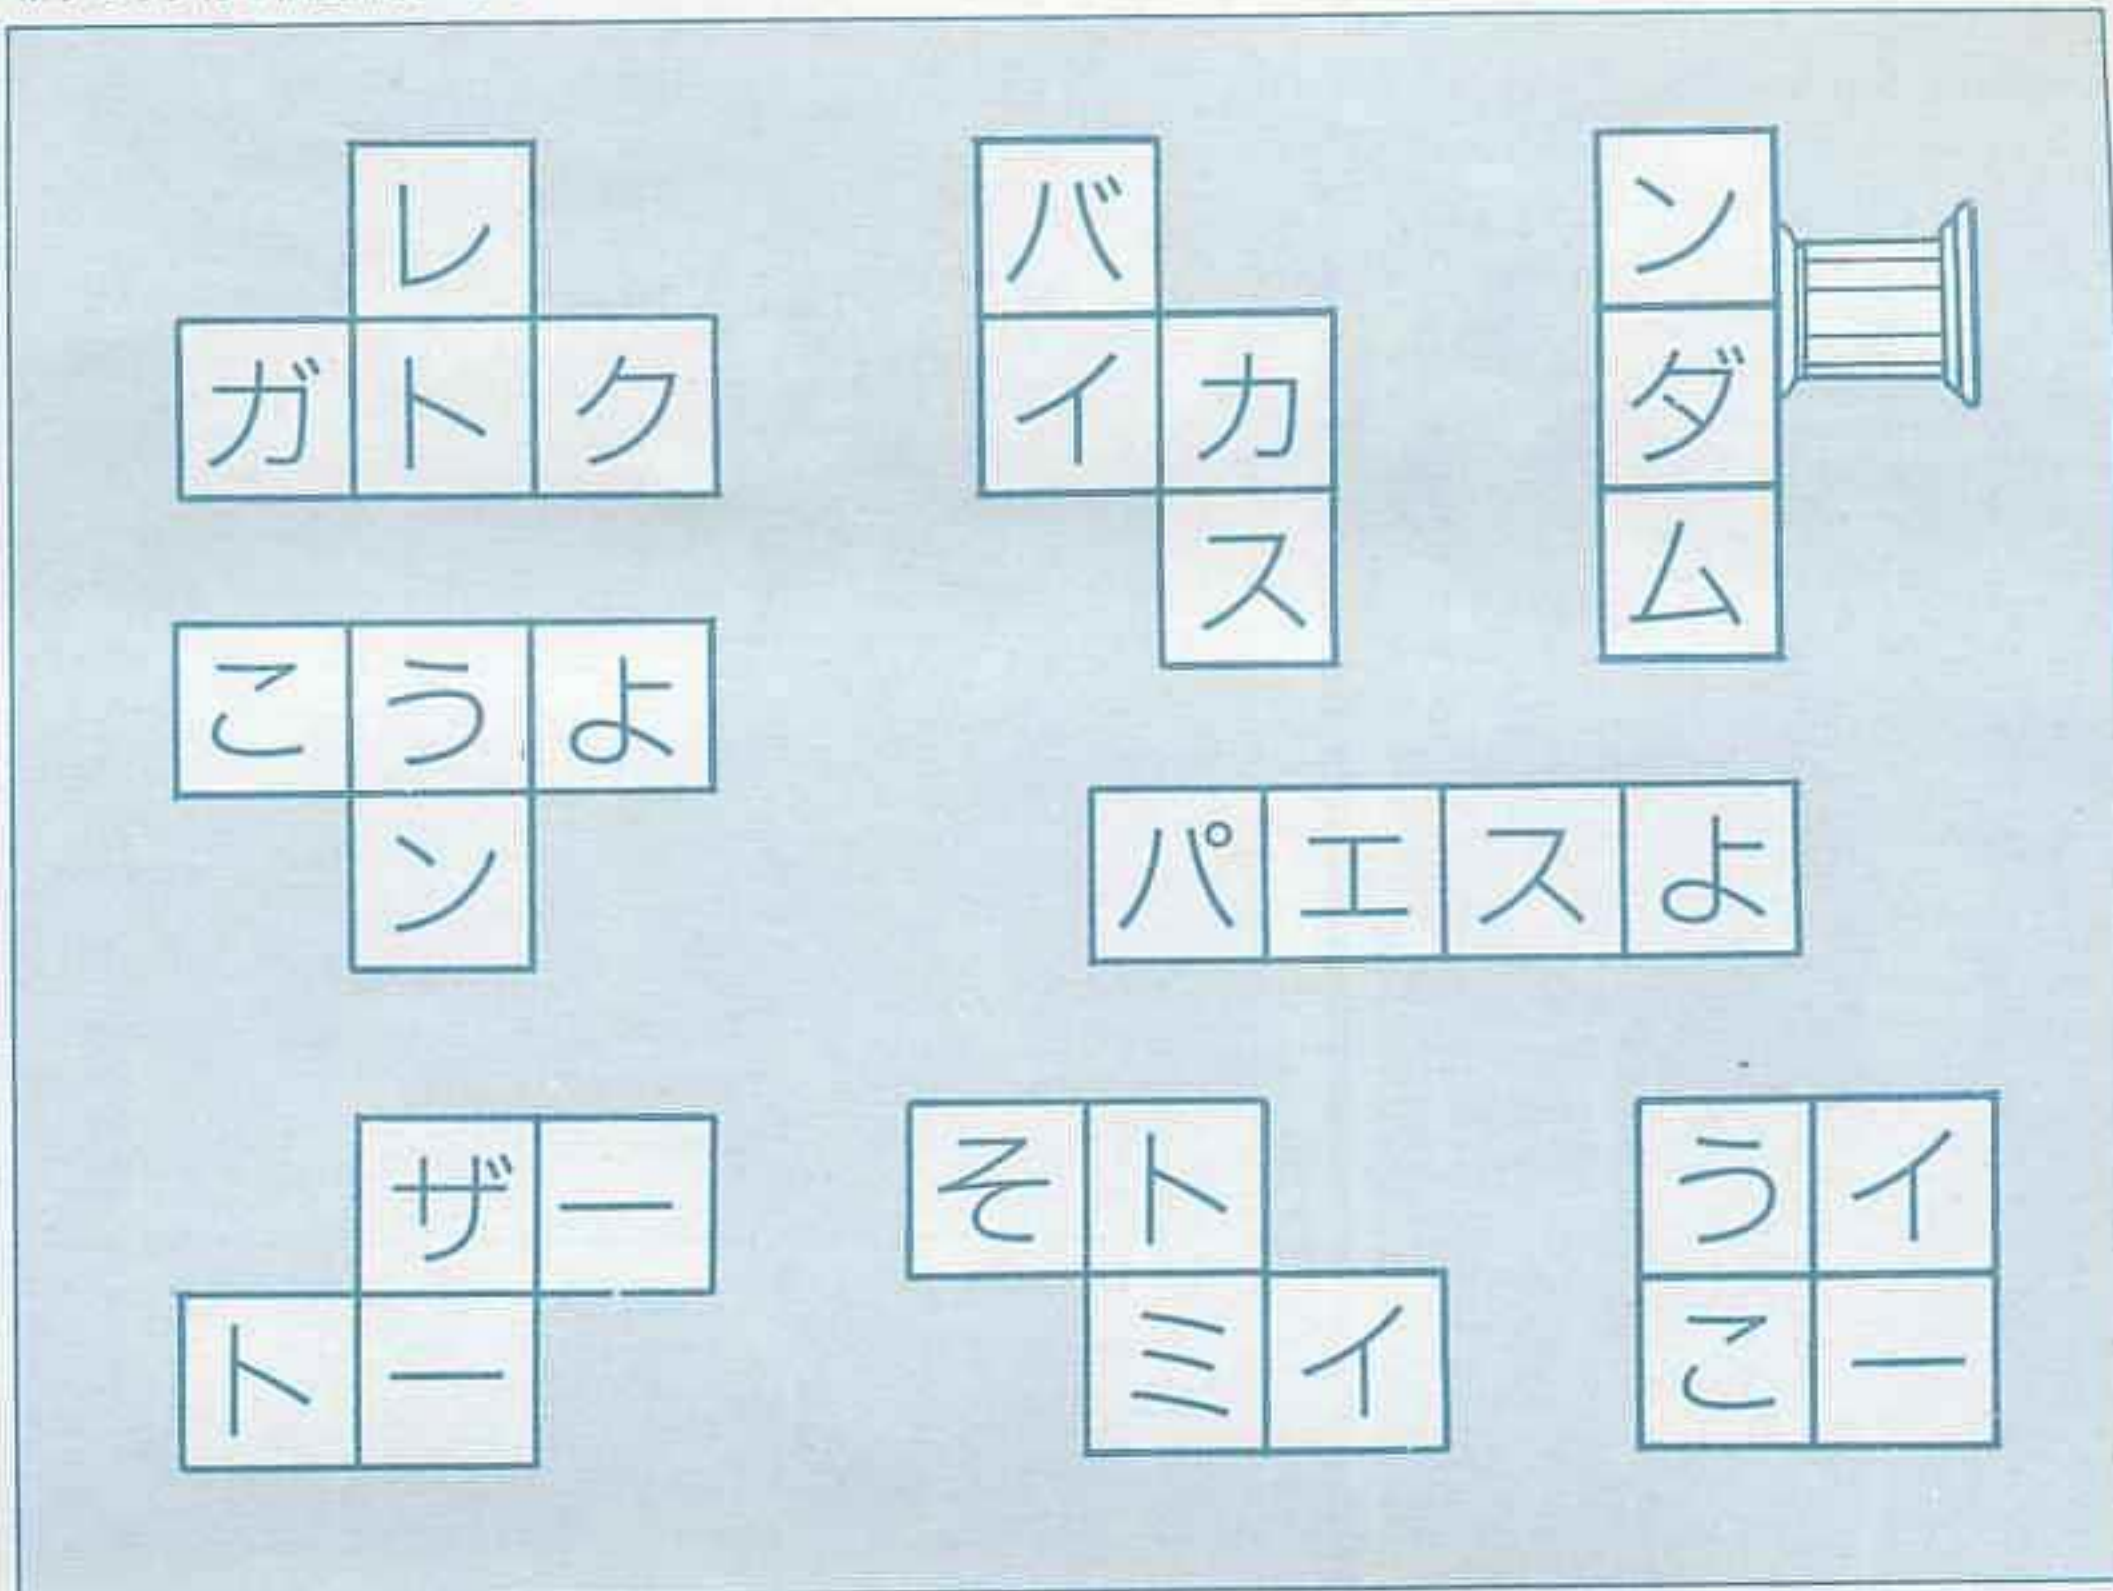 レ
ガトク
バ
イカ
ス
ン
ダ
ム
こうよ
ン
パエスよ
ザー
トー
そト
ミイ
うイ
こー